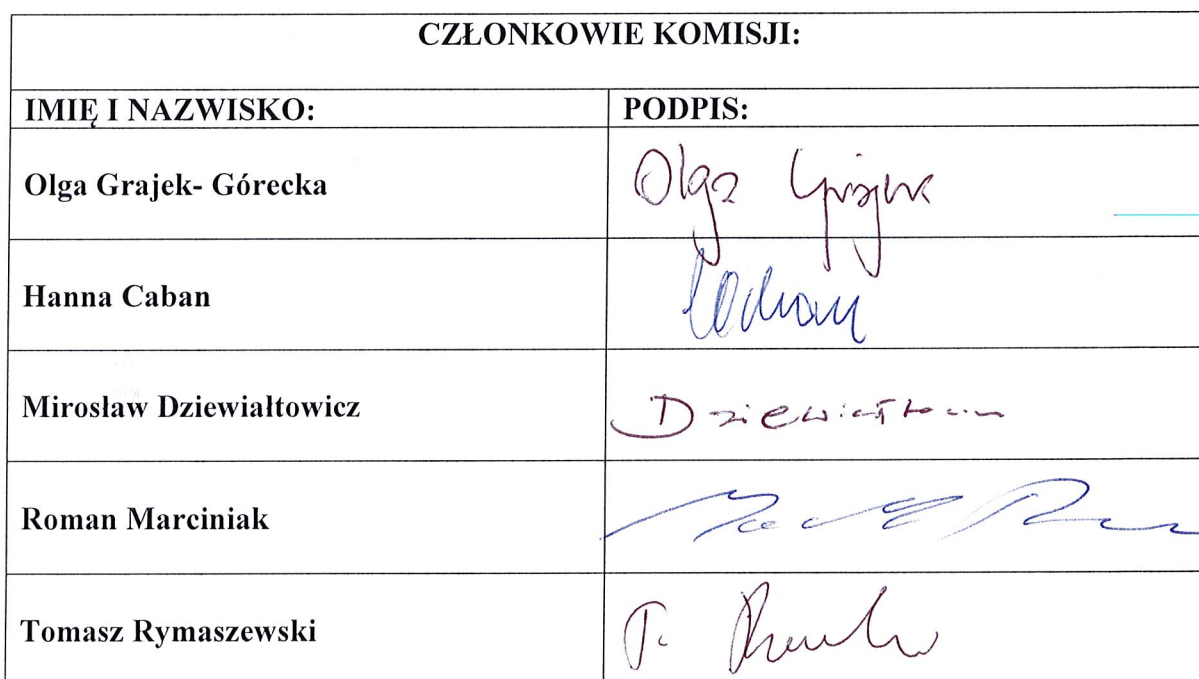 CZŁONKOWIE KOMISJI:
IMIĘ I NAZWISKO: PODPIS:
Olga Grajek- Górecka Olga Grajek
Hanna Caban
Mirosław Dziewiałtowicz
Roman Marciniak
Tomasz Rymaszewski T.